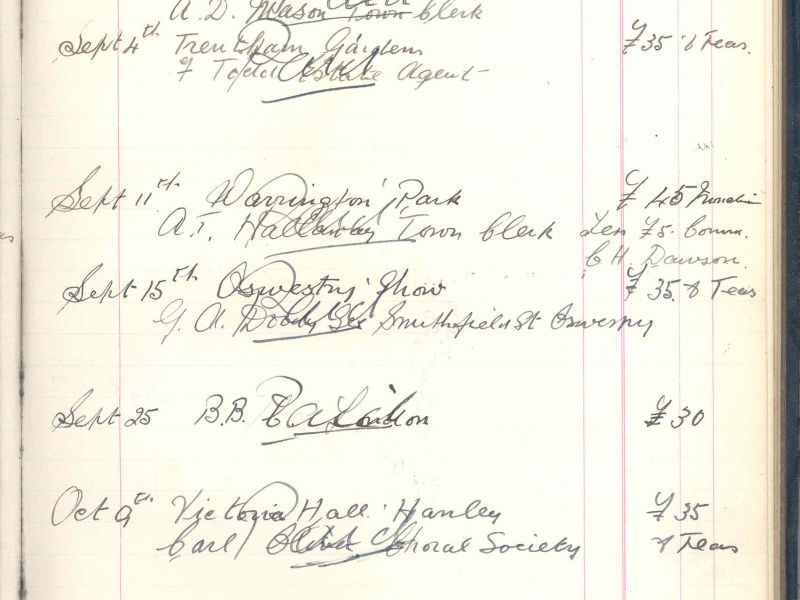 A. D. Mason Town Clerk
Sept 4th Trentham Gardens £35 & Teas.
F Todd Estate Agent
Sept 11th Warrington Park £45
A. T. Hallaway Town Clerk Less £5. Comm.
C H. Dawson.
Sept 15th Oswestry Show £35. & Teas
G. A. Sec Smithfield St Oswestry
Sept 25 B.B. London £30
Oct 9th Victoria Hall. Hanley £35
Carl Choral Society & Teas